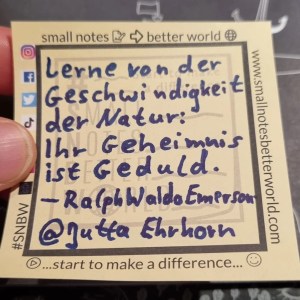 small notes → better world
Lerne von der
Geschwindigkeit
der Natur:
Ihr Geheimnis
ist Geduld.
— Ralph Waldo Emerson
@Jutta Ehrhorn
...start to make a difference...
#SNBW
www.smallnotesbetterworld.com